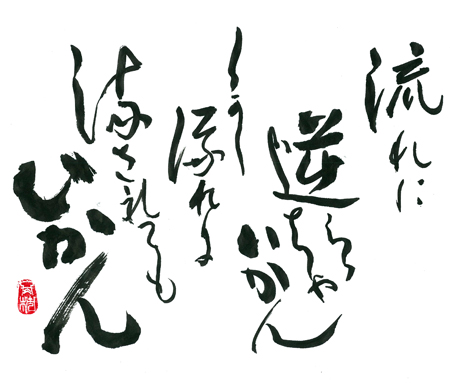 流れに
逆らっちゃ
いかん
しかし
流れに
流されても
いかん